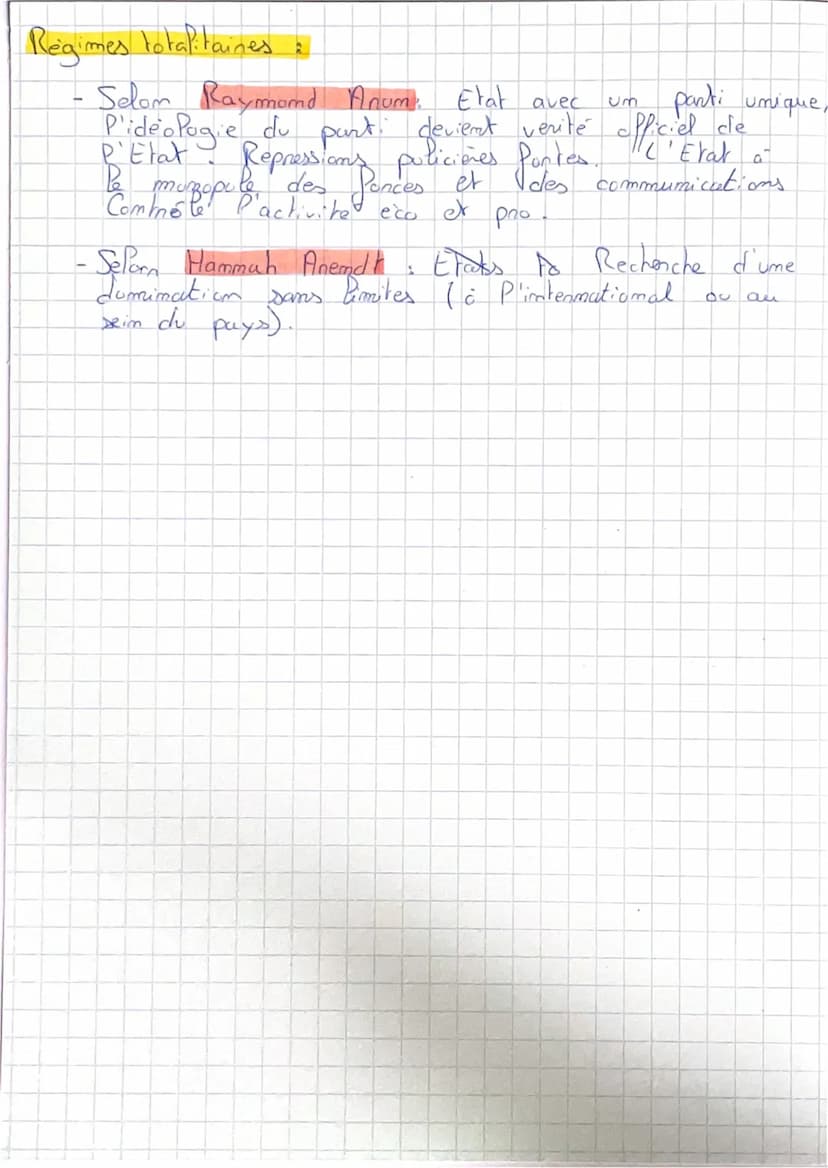 Régimes totalitaires :
- Selon Raymond Aron : Etat avec un parti unique,
l'idéologie du parti devient verité officiel de
l'Etat. Repressions policières fortes. L'Etat a
le monopole des forces et des communications
Contrôle l'activité éco et pro.
- Selon Hannah Arendt : Recherche d'une
domination sans limites (à l'international ou au
sein du pays).